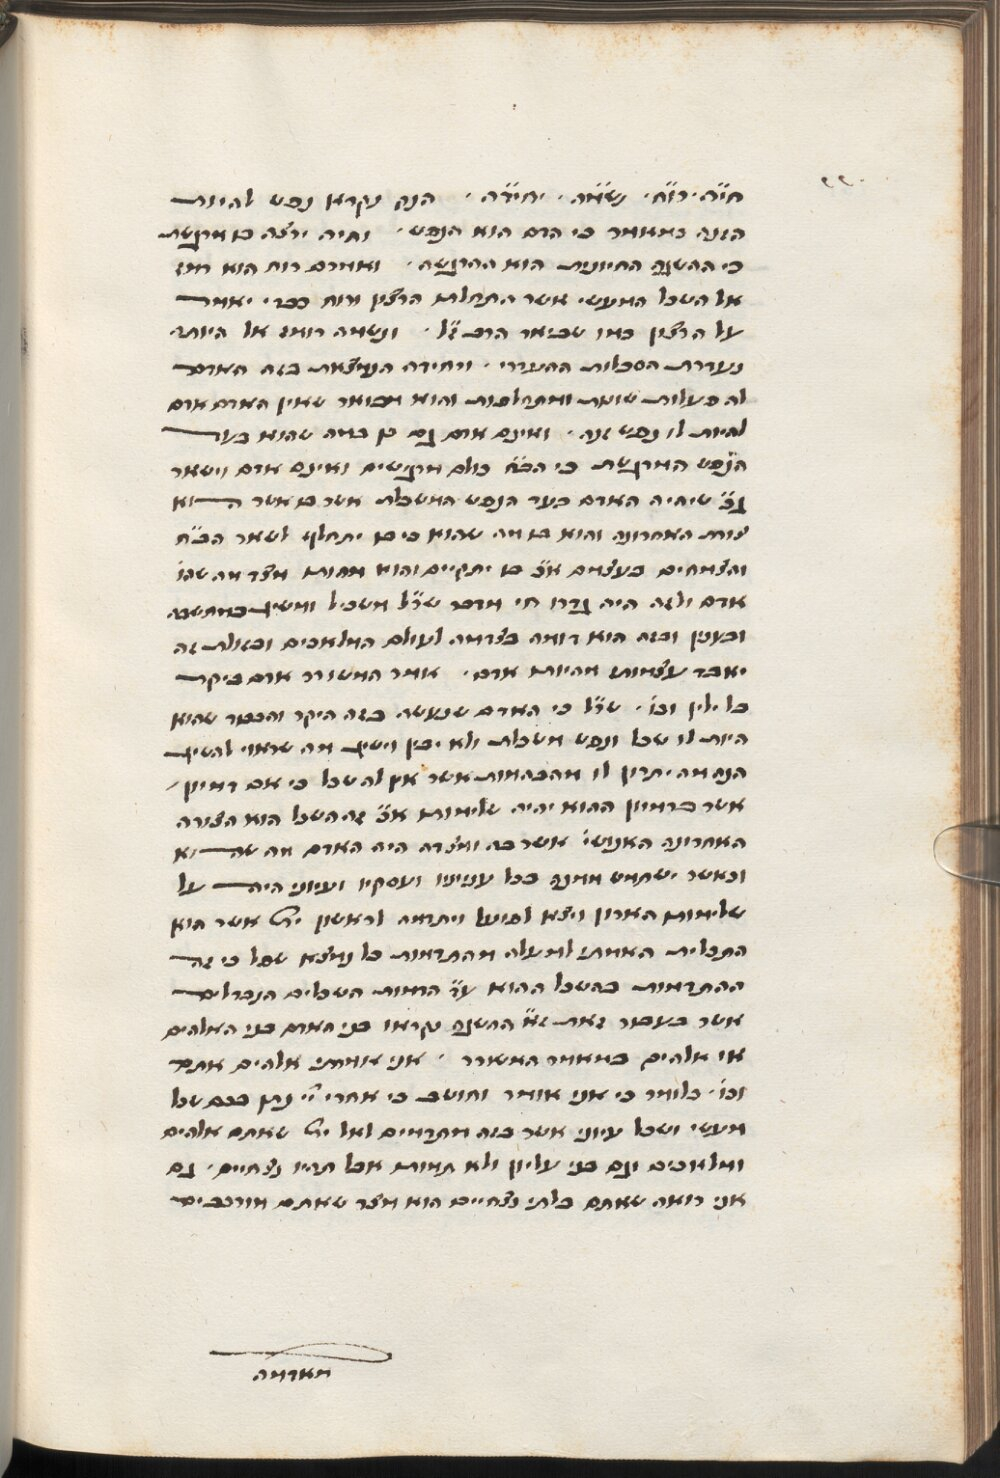 חיה · רוח · נשמה · יחידה · הנה נקרא נפש להיות
הזנה כמאמר כי הדם הוא הנפש · וחיה ירצה בו מרגשת
כי ההשגה החיונית הוא ההרגשה · ואמרם רוח הוא רמז
אל השכל המעשי אשר התחלתו הרצון ורוח כבר יאמר
על הרצון כמו שביאר הרב ז״ל · ונשמה רומז אל היותה
נעדרת הסכלות ההעדרי · ויחידה הנמצאת בזה האדם
לה פעלות שונות ומתחלפות והוא מבואר שאין האדם אדם
להיות לו נפש זנה · ואינם אדם גם כן במה שהוא בעל
הנפש המרגשת כי הב״ח כולם מרגישים ואינם אדם וישאר
א״כ שיהיה האדם בעד הנפש המשכלת אשר בו אשר הוא
צורתו האחרונה והוא בו מה שהוא כי בו יתחלף לשאר הב״ח
והצמחים בעצמם א״כ בו יתקיים והוא מהותו מצד מה שהו׳
אדם ולזה היה גדרו חי מדבר ש״ל משכיל ומשיג במחשבה
ובענין ובזה הוא דומה בצדמה לעולם המלאכים ובזולת זה
יאבד עצמותו מהיות אדם · אמר המשורר אדם ביקר
בל ילין וכו׳ · ש״ל כי האדם שנעשה בזה היקר והכבוד שהוא
היות לו שכל ונפש משכלת ולא יבין וישיג מה שראוי להשיג
הנה מה יתרון לו מהבהמות אשר אין להשכל כי אם דמיון
אשר בדמיון ההוא יהיה שלימותו א״כ זה השכל הוא הצורה
האחרונה האנושי׳ אשר בה ומצדה היה האדם מה שהוא
וכאשר ישתמש ממנה בכל עניניו ועסקיו ועיוניו היה על
שלימות האדון ויצא לפועל ויתדמה לראשון ית׳ אשר הוא
התכלית האמתי למעלה מהתדמות כל נמצא שפל כי זה
ההתדמות בהשכל ההוא ע״ד הדמות השכלים הנבדלים
אשר בעבור זאת ז״א ההשגה נקראו בני האדם בני האלהים
או אלהים כמאמר המשורר · אני אמרתי אלהים אתם
וכו׳ · כלומר כי אני אומר וחושב כי אחרי ייי נתן בכם שכל
מעשי ושכל עיוני אשר בזה מתדמים לאל ית׳ שאתם אלהים
ומלאכים וגם בני עליון ולא תמותו אבל תהיו נצחיים · גם
אני רואה שאתם בלתי נצחיים הוא מצד שאתם מורכבים
מאדמה